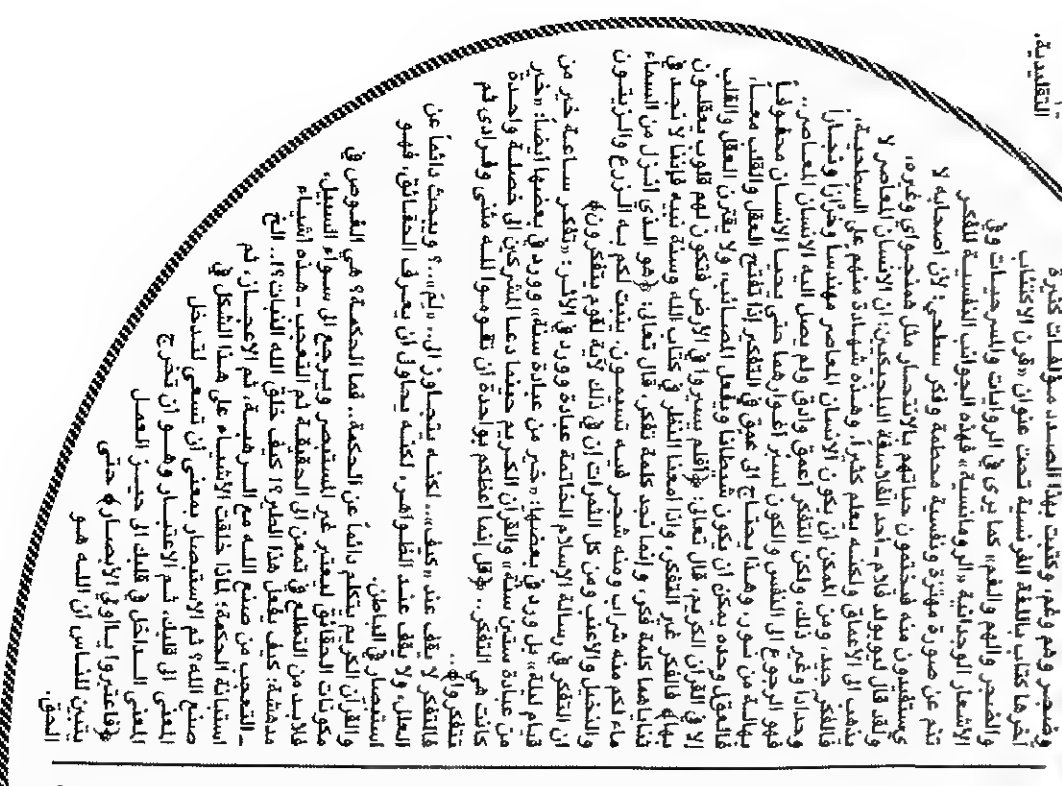 التقليدية.
وضجر وهم وغم، وكتبت بهذا الصدد مؤلفات كثيرة
آخرها كتاب باللغة الفرنسية تحت عنوان «قرن الاكتئاب
والضجر والهم والغم»، كما يرى في الروايات والمسرحيات وفي
الأشعار الوجدانية «الرومانسية» فهذه الجوانب النفسية للفكر
تنم عن صورة مهتزة ونفسية محطمة وفكر سطحي؛ لأن أصحابه لا
يستقسون منه فيختمون حياتهم بالانتحار مثل همنجواي وغيره،
ولقد قال ليوبولد فلام ـ أحد الفلاسفة البلجيكين: ان الانسان المعاصر لا
يذهب الى الأعماق ولكنه يعلم كثيراً، وهذه شهادة منهم على السطحية،
فالفكر جيد، ومن الممكن أن يكون الإنسان المعاصر مهندسا وهزازا ونجاراً
وحدادا وغير ذلك، ولكن التفكر أعمق وأدق ولم يصل اليه الانسان المعاصر..
فهو الرجوع الى النفس والكون لسبر أغوارهما حتى يحيا الانسان محفوفاً
بهالة من نور، وهذا يحتاج الى عمق في التفكير إذا تفتح العقل والقلب معـاً،
فالعقل وحده يمكن أن يكون شيطانا ويفعل المصائب، ولا يقترن العقل والقلب
إلا في القرآن الكريم، قال تعالى: ﴿أفلم سيروا في الأرض فتكون لهم قلوب يعقلون
بها﴾ فالفكر غير التفكر، واذا أمعنا النظر في كتاب الله وسنة نبيه فإننا لا نجد في
ثناياهما كلمة فكر، وإنما نجد كلمة تفكر، قال تعالى: ﴿هو الذي انزل من السماء
ماء لكم منه شراب ومنه شجر فيه تسيمون، ينبت لكم به الزرع والزيتون
والنخيل والأعنب ومن كل الثمرات إن في ذلك لآية لقوم يتفكرون﴾
ان التفكر في رسالة الإسلام الخاتمة عبادة وورد في الأثر: «تفكر ساعة خير من
قيام ليلة» بل ورد في بعضها: «خير من عبادة سنة» وورد في بعضها أيضاً: «خير
من عبادة ستين سنة» والقرآن الكريم حينما دعا المشركين الى خصلة واحدة
كانت هي التفكر.. ﴿قل إنما أعظكم بواحدة أن تقوموا لله مثنى وفرادى ثم
تتفكروا﴾..
فالتفكر لا يقف عند «كيف».. لكنه يتجاوز الى.. «لِمَ»..؟ ويبحث دائماً عن
العلل، ولا يقف عند الظواهر، لكنه يحاول أن يعرف الحقائق، فهو
استبصار في الباطن.
والقرآن الكريم يتكلم دائماً عن الحكمة.. فما الحكمة؟ هي الغوص في
مكونات الحقائق ليعتبر غير المستبصر ويرجع الى سواء السبيل،
فلابد من التطلع في تمعن الى الحقيقة ثم التعجب ـ هذه أشياء
مدهشة: كيف يفعل هذا الطير؟! كيف خلق الله النبات؟!.. الخ
ـ التعجب من صنع الله مع الرهبة، ثم الاعجاز، ثم
استبانة الحكمة: لماذا خلقت الأشياء على هذا الشكل في
صنع الله؟ ثم الاستبصار بمعنى أن تسعى لتدخل
المعنى الى قلبك، ثم الاعتبار وهو أن تخرج
المعنى الداخل في قلبك الى حيز العمل
﴿فاعتبروا يا أولي الأبصار﴾ حتى
يتبين للناس أن الله هو
الحق.